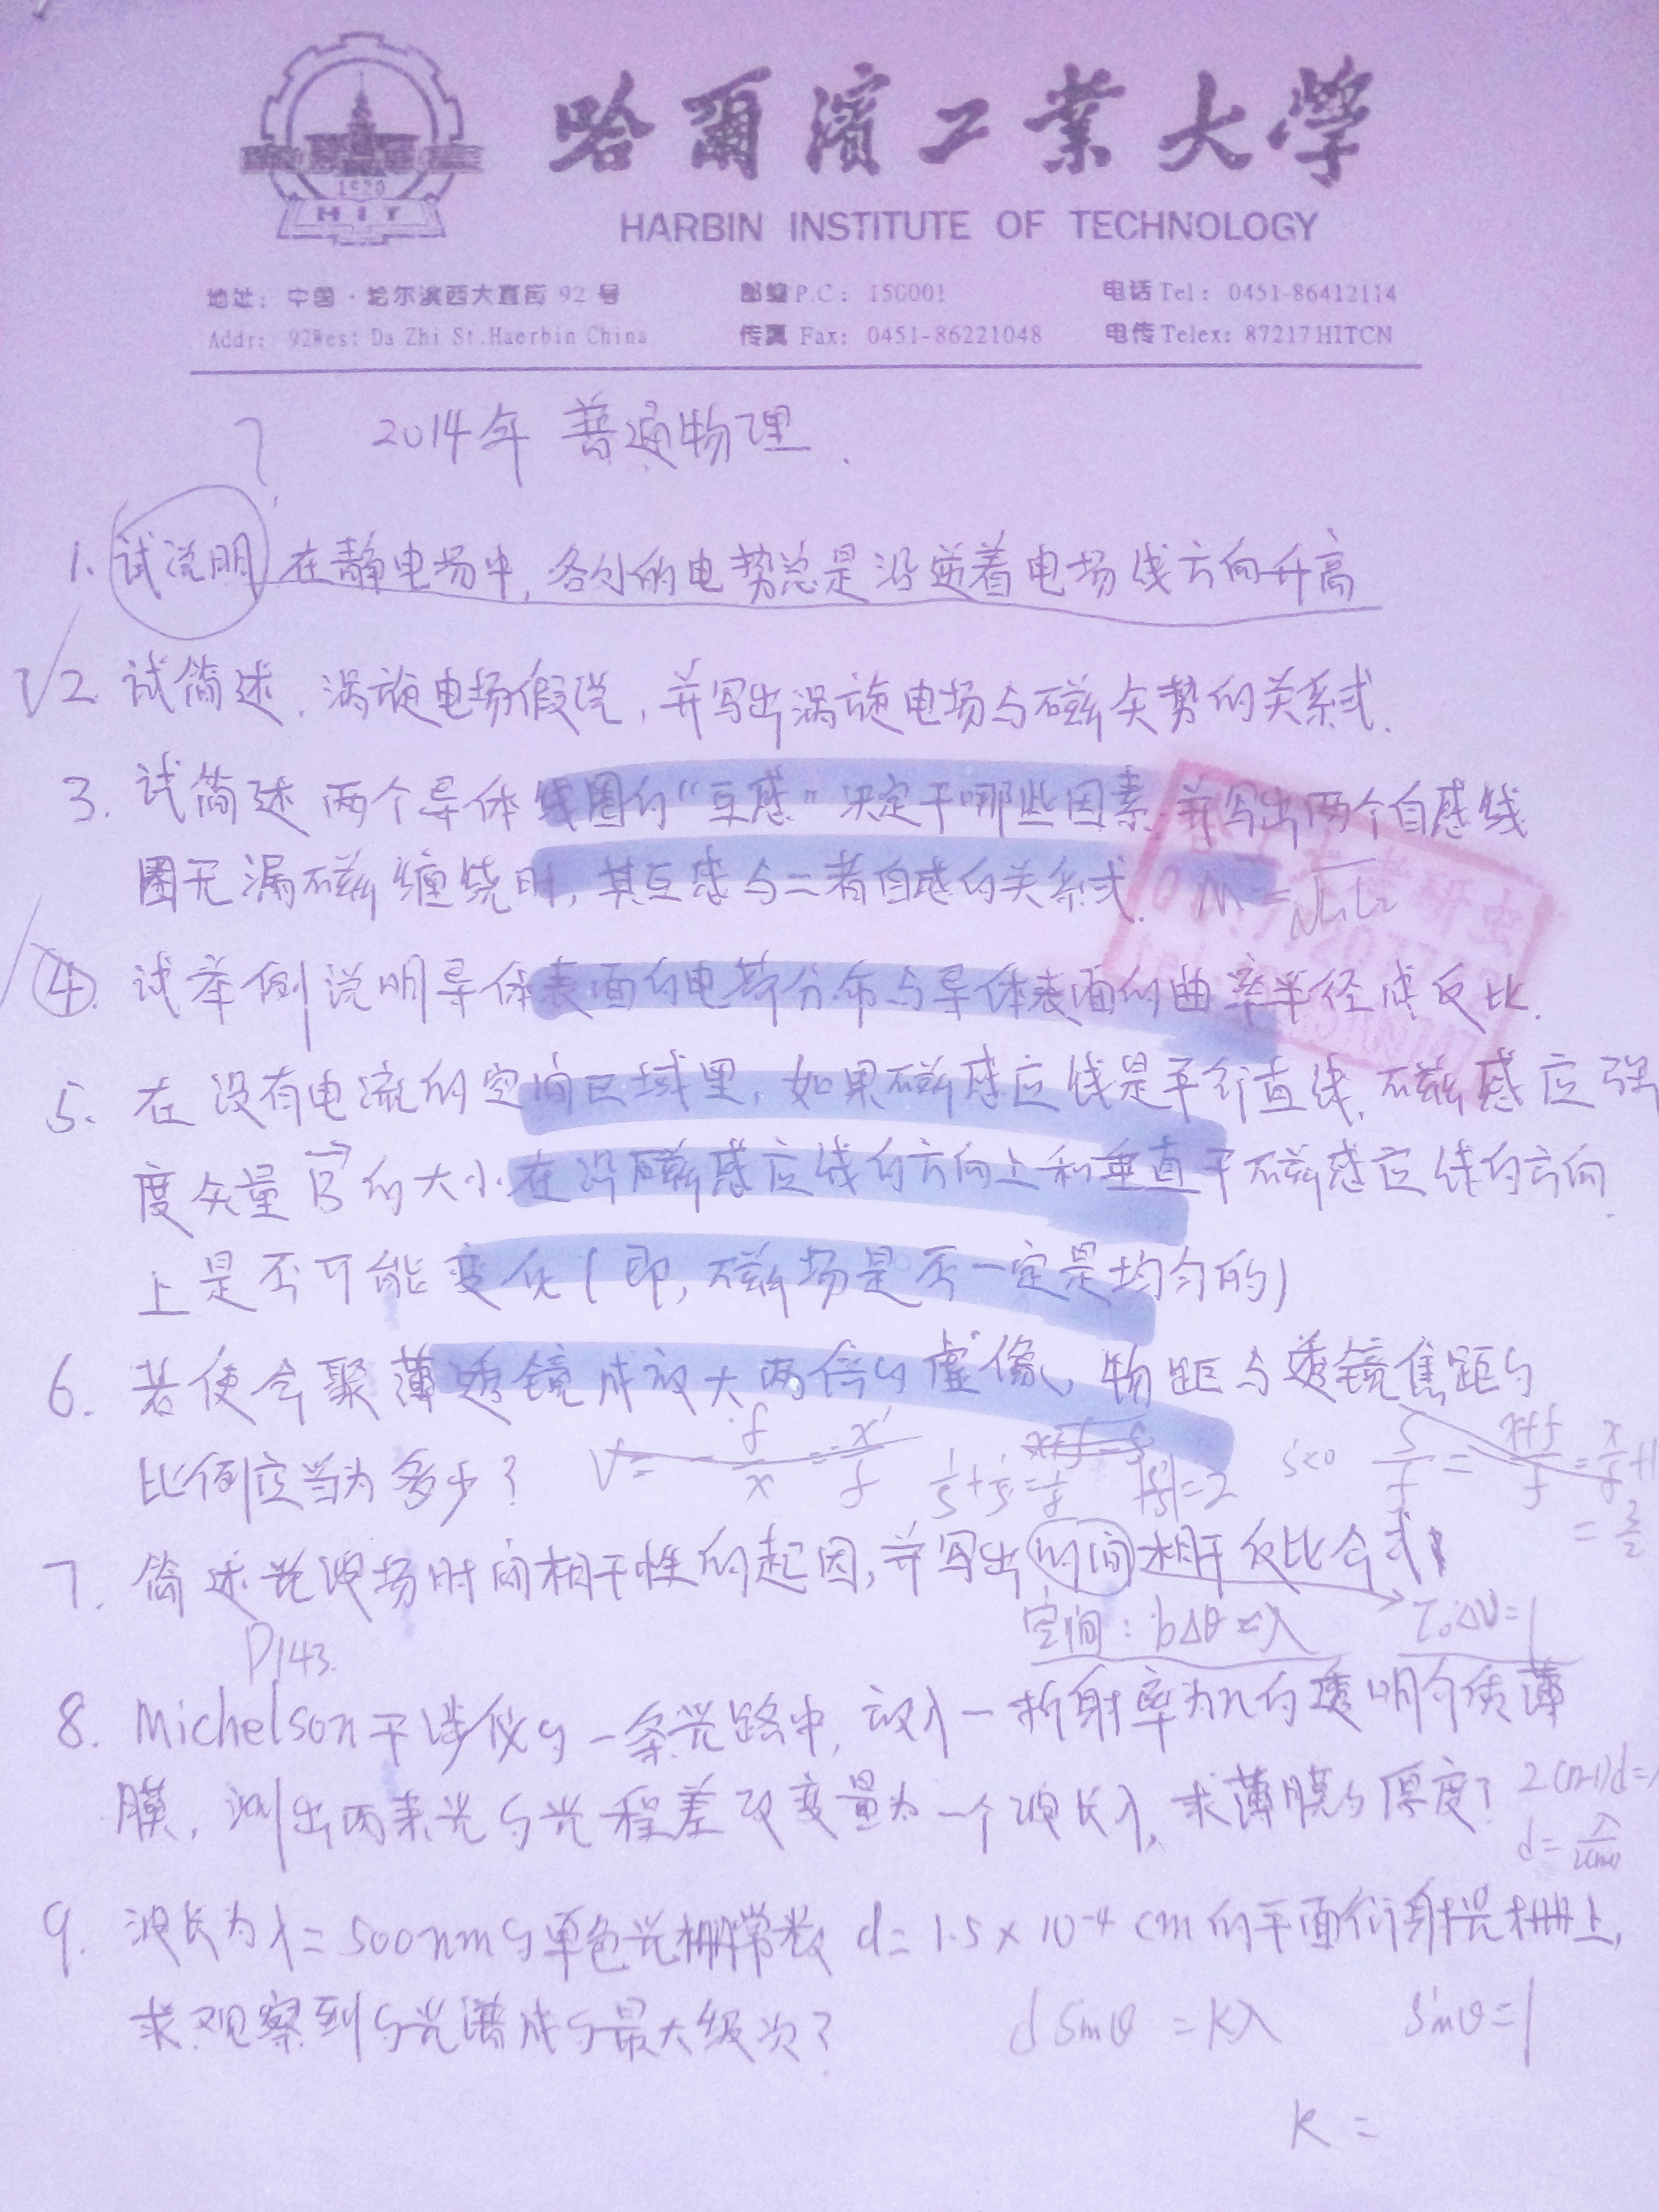 哈爾濱工業大學
HARBIN INSTITUTE OF TECHNOLOGY
1920
HIT
地址：中国·哈尔滨西大直街 92 号 邮编 P.C： 150001 电话 Tel： 0451-86412114
Addr： 92West Da Zhi St.Haerbin China 传真 Fax： 0451-86221048 电传 Telex：87217HITCN
2014年 普通物理.
1. 试说明 在静电场中, 各处的电势总是沿逆着电场线方向升高
√2. 试简述. 涡旋电场假说, 并写出涡旋电场与磁矢势的关系式.
3. 试简述 两个导体 线圈的"互感"决定于哪些因素. 并写出两个自感线
圈无漏磁缠绕时, 其互感与二者自感的关系式. M=√L₁L₂
④. 试举例说明导体表面的电荷分布与导体表面的曲率半径成反比.
5. 在没有电流的空间区域里, 如果磁感应线是平行直线, 磁感应强
度矢量 B 的大小在沿磁感应线的方向上和垂直于磁感应线的方向
上是否可能变化(即, 磁场是否一定是均匀的)
6. 若使会聚薄透镜成放大两倍的虚像, 物距与透镜焦距的
比例应当为多少?
7. 简述光波场时间相干性的起因, 并写出时间相干反比公式
空间: bΔθ≈λ τ₀Δν=1
P143.
8. Michelson干涉仪的一条光路中, 放入一折射率为n的透明介质薄
膜, 测出两束光的光程差改变量为一个波长λ, 求薄膜的厚度? 2(n-1)d=λ
9. 波长为λ=500nm的单色光栅常数 d=1.5×10⁻⁴cm的平面衍射光栅上,
求观察到的光谱成的最大级次? dsinθ=kλ sinθ=1
K =